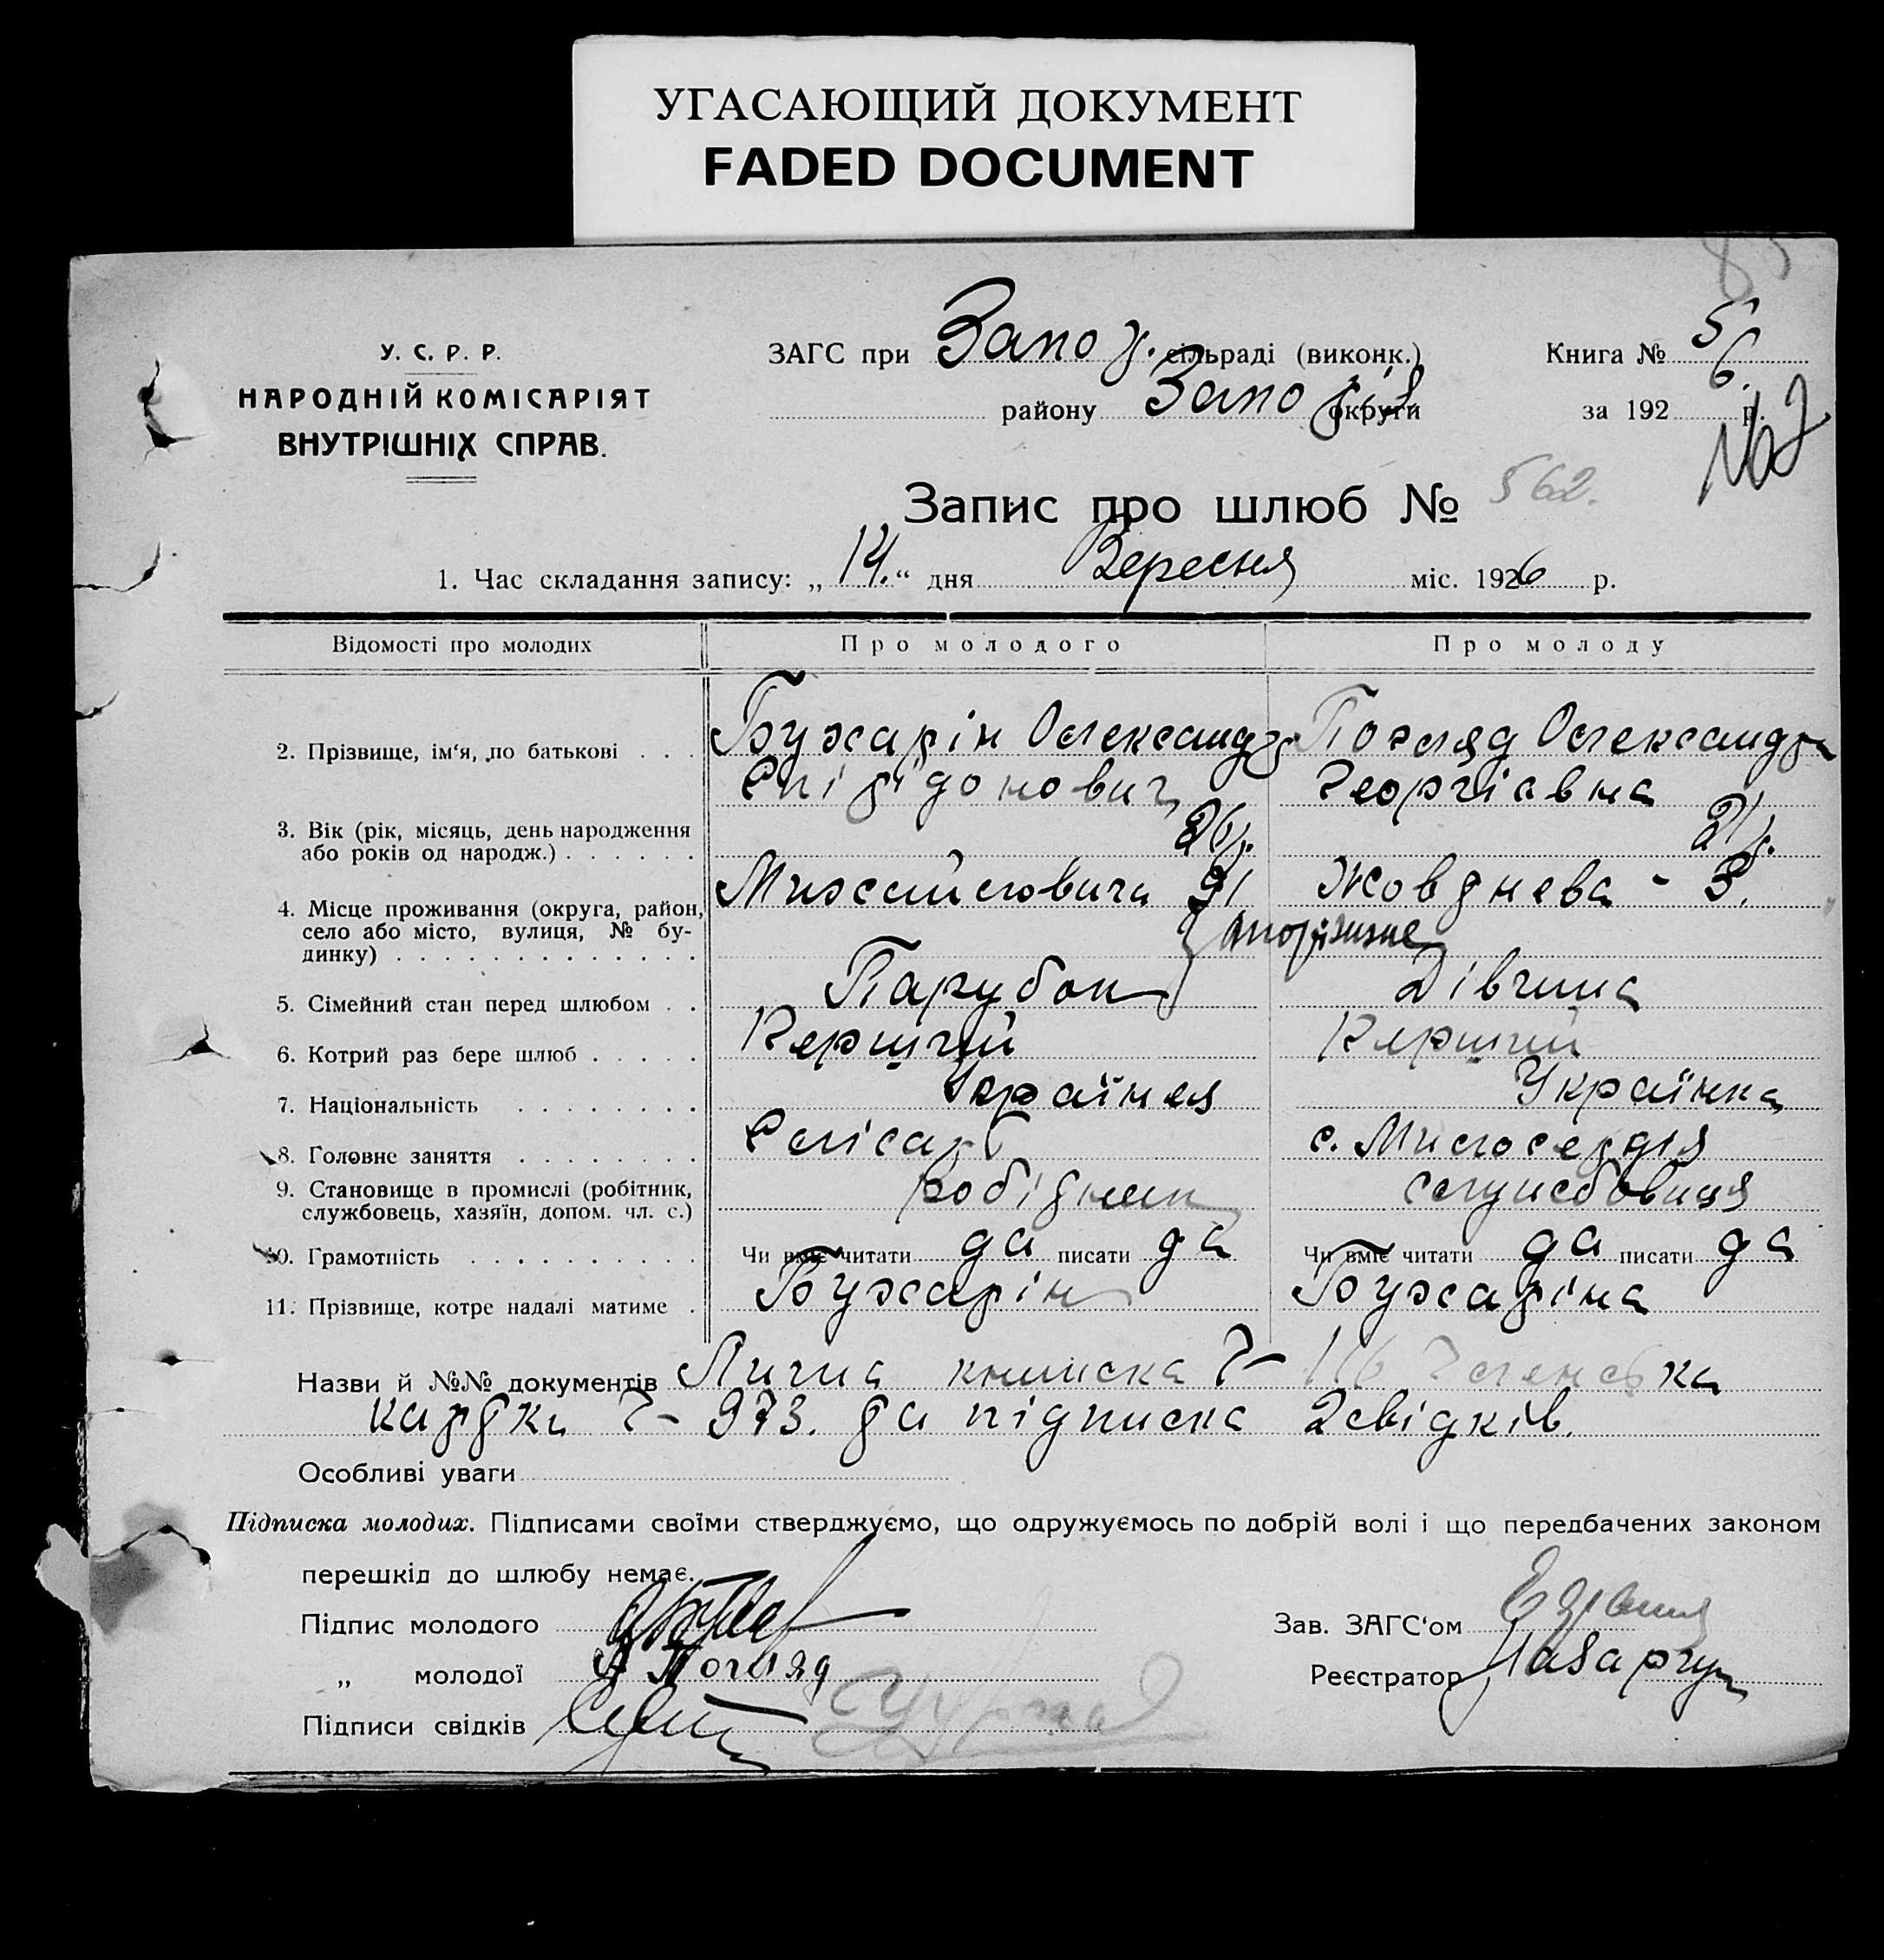 УГАСАЮЩИЙ ДОКУМЕНТ
FADED DOCUMENT
У. С. Р. Р.
НАРОДНІЙ КОМІСАРІЯТ
ВНУТРІШНІХ СПРАВ.
ЗАГС при Запор. сільраді (виконк.)
району Запоріз округи
Книга № 5
за 1926. р.
Запис про шлюб № 562.
1. Час складання запису: „14.“ дня Вересня міс. 1926 р.
Відомості про молодих Про молодого Про молоду
2. Прізвище, ім‘я, по батькові . . . Бухарін Олександр Погляд Олександра
Спірідонович Георгіевна
3. Вік (рік, місяць, день народження 26р. 21р.
або років од народж.) . . . . . .
4. Місце проживання (округа, район, Михайловича 91 Жовтнева - 3.
село або місто, вулиця, № бу- Запоріжжє
динку) . . . . . . . . . . . . . .
5. Сімейний стан перед шлюбом . . Парубок Дівчина
6. Котрий раз бере шлюб . . . . . Перший Перший
7. Національність . . . . . . . . Українець Українка
8. Головне заняття . . . . . . . . Слісарь с. Милосердія
9. Становище в промислі (робітник, робітник службовиця
службовець, хазяїн, допом. чл. с.)
10. Грамотність . . . . . . . . . . Чи вміє читати да писати да Чи вміє читати да писати да
11. Прізвище, котре надалі матиме . Бухарін Бухаріна
Назви й №№ документів Лична книжка Ч- 116 Членська
картка Ч- 973. та підписка 2 свідків.
Особливі уваги
Підписка молодих. Підписами своїми стверджуємо, що одружуємось по добрій волі і що передбачених законом
перешкід до шлюбу немає.
Підпис молодого
Зав. ЗАГС‘ом
„ молодої А Погляд
Реєстратор
Підписи свідків